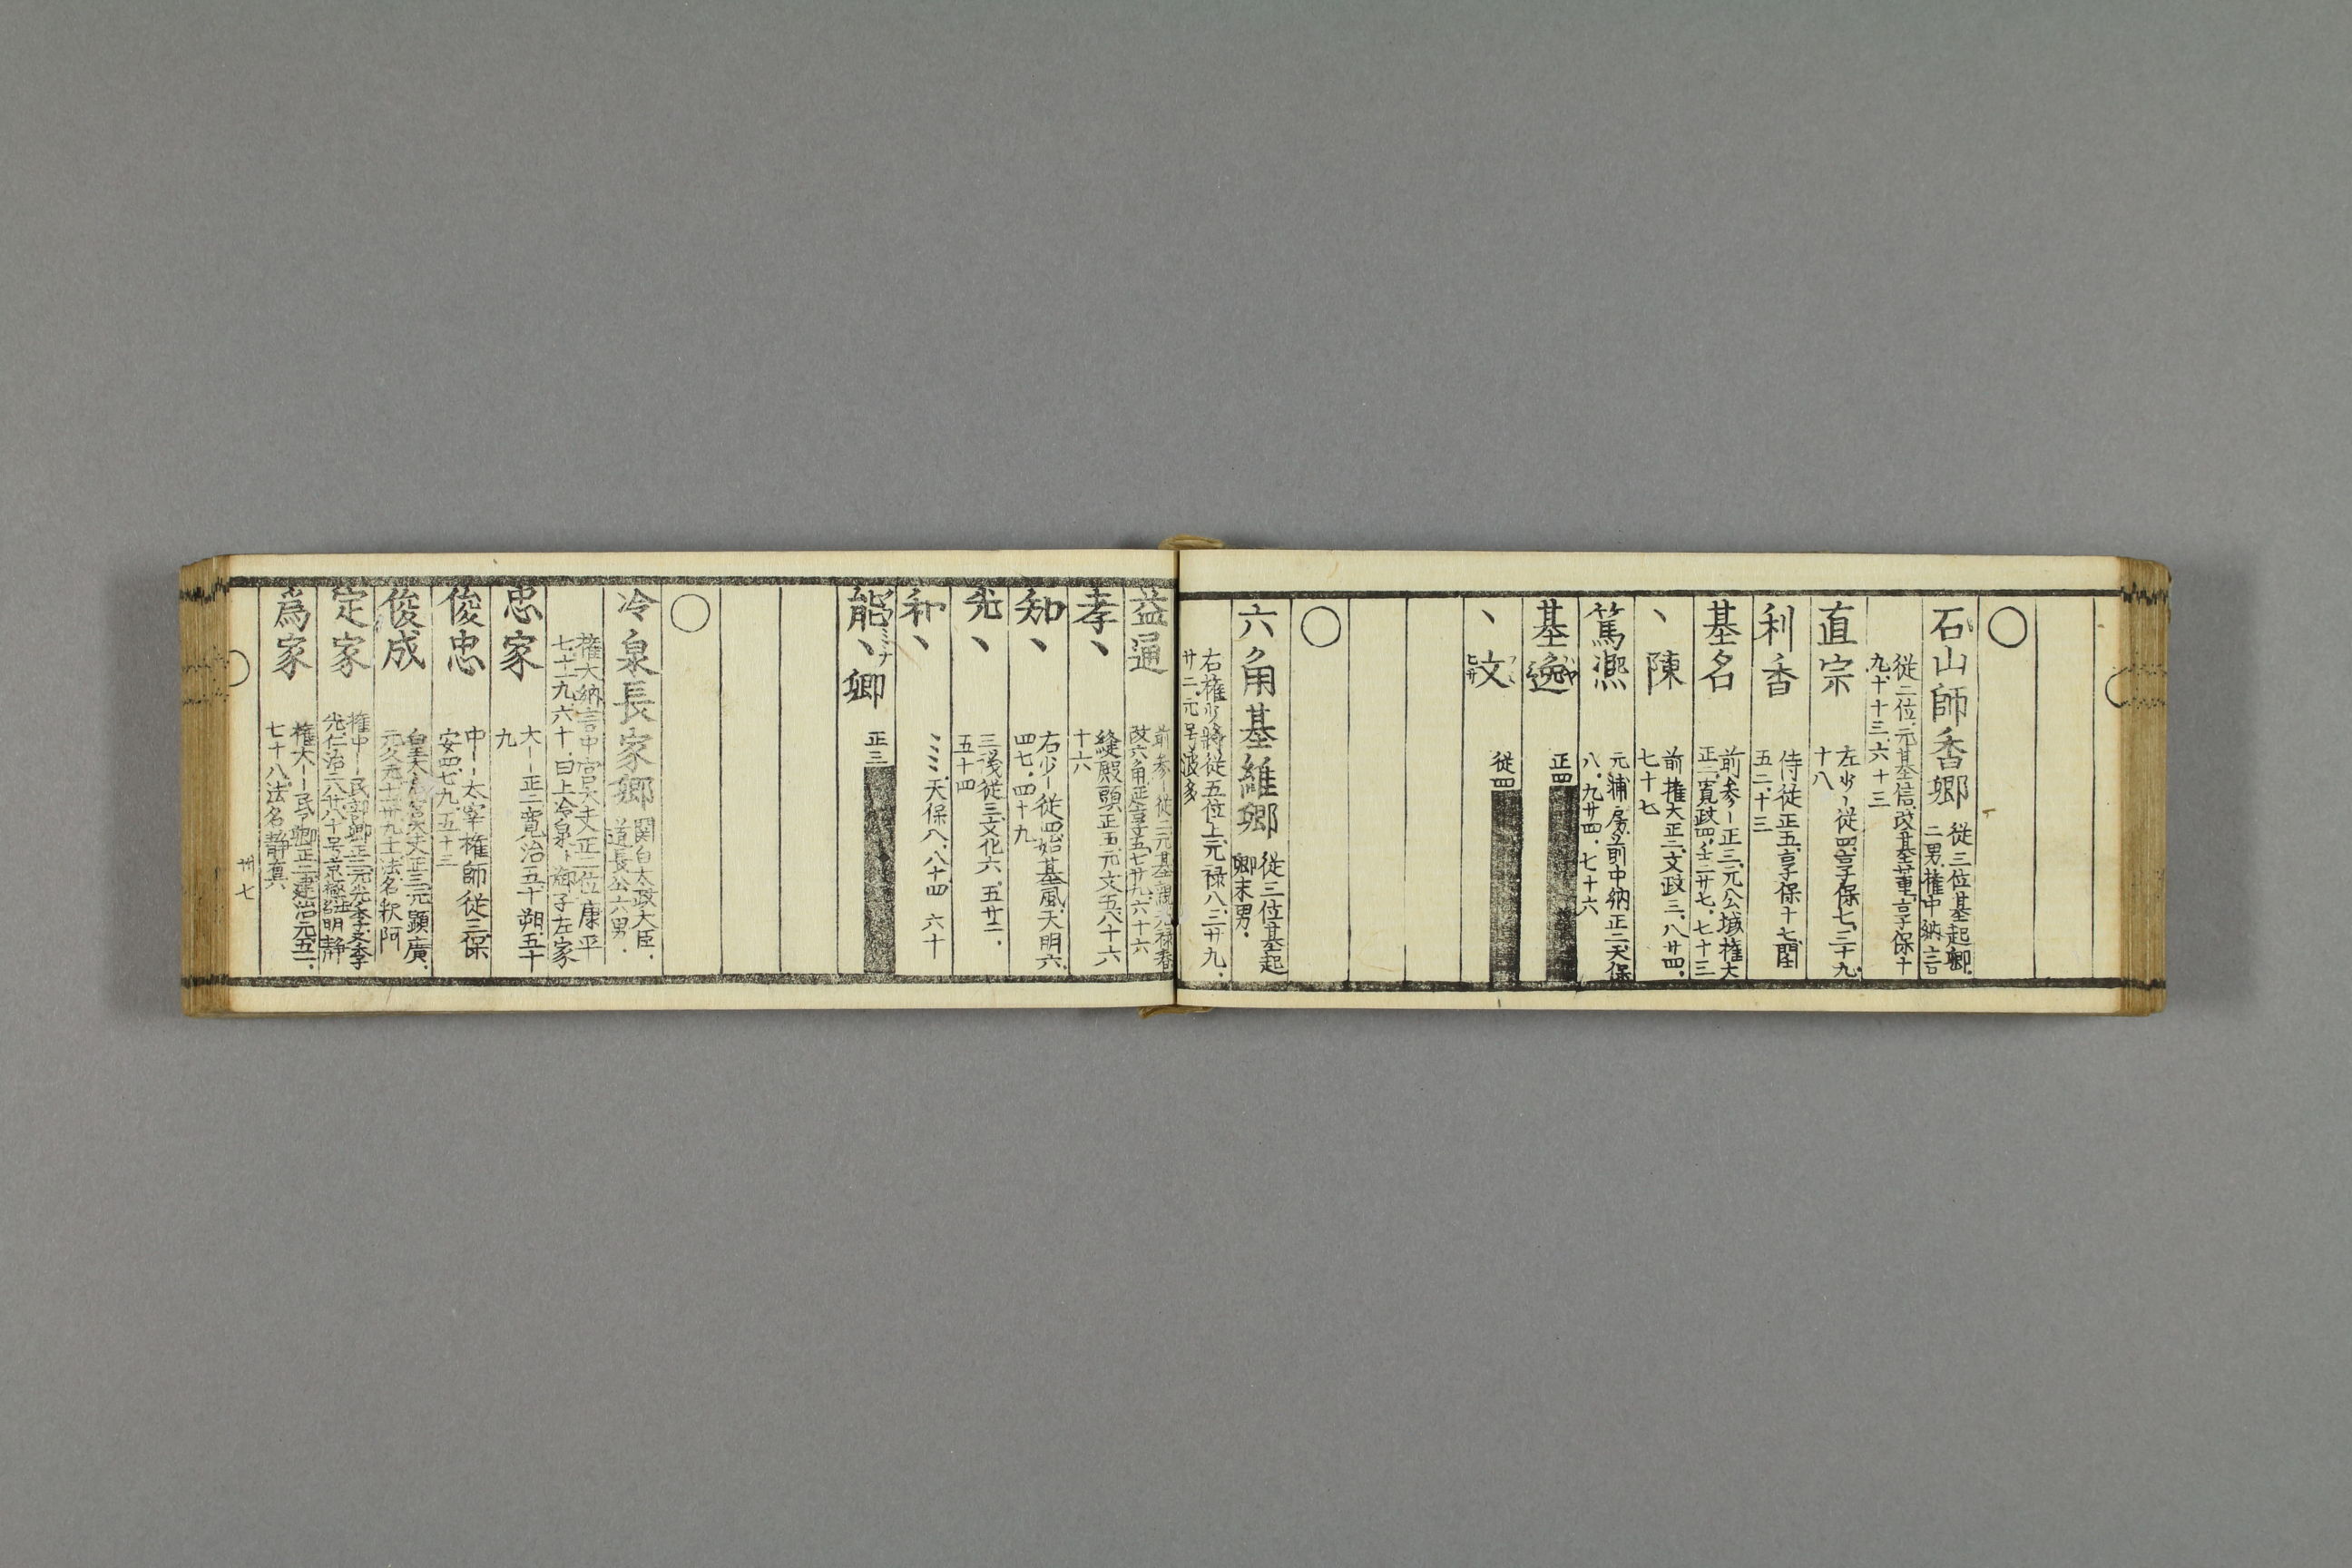 〇
石山師香卿
従三位基起卿
二男権中納言
従二位元基信改基董享保十
九十十三六十三
直宗
左少ー従四享保七三十九
十八
利香
侍従正五享保十七閏
五二十三
基名
前参ー正三元公城権大
正二寛政四壬二廿七七十三
丶陳
前権大正二文政三八廿四
七十七
篤熈
元浦房前中納正二天保
八九廿四七十六
基逸
正四
丶文
従四
〇
六角基維卿
従三位基起
卿末男
右権少将従五位上元禄八三廿九
廿二元号波多
益通
前参ー従二元基親元禄春
改六角正享五七廿九六十六
孝丶
縫殿頭正五元文五八十六
十六
知丶
右少ー従四始基風天明六
四七四十九
光丶
三後従三文化六五廿二
五十四
和丶
ミミミ天保八八十四六十
能丶卿
正三
〇
冷泉長家卿
関白太政大臣
道長公六男
権大納言中宮大夫正二位康平
七十一九六十曰上冷泉丶御子左家
忠家
大ー正二寛治五十朔五十
九
俊忠
中ー太宰権師従三保
安四七九五十三
俊成
皇太后宮大夫正三元顕廣
元久元十一卅九十一法名釈阿
定家
権中ー民部卿正二元光季又季
光仁治二八廿八十号京極法名明静
為家
権大ー民卿正二建治元五一
七十八法名静真
卅七